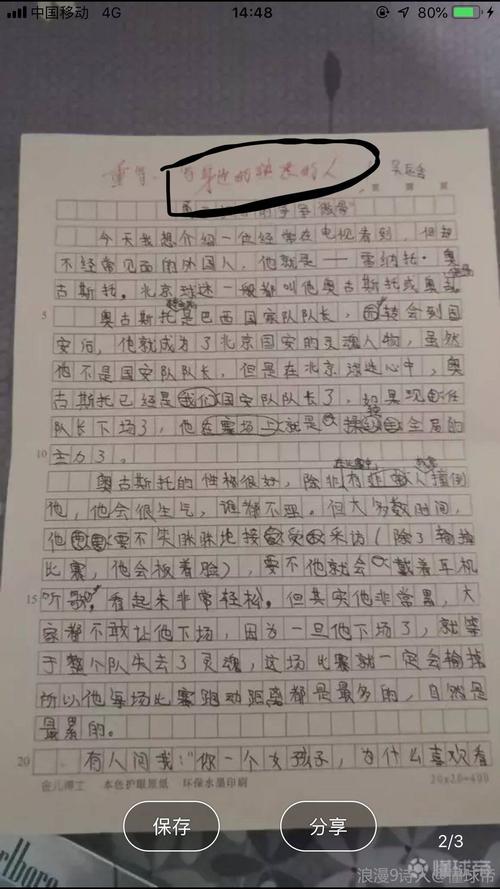 中国移动 4G 14:48 80%
重写：写身边的熟悉的人
今天我想介绍一位经常在电视看到，但却
不经常见面的外国人，他就是——雷纳托·奥
古斯托。北京球迷一般都叫他奥古斯托或奥
5 奥古斯托是巴西国家队队长，转会到国
安后，他就成为了北京国安的灵魂人物，虽然
他不是国安队队长，但是在北京球迷心中，奥
古斯托已经是我们国安队队长了，如果现任
队长下场了，他在赛场上就是操纵全局的
10 主力了。
奥古斯托的性格很好，除非有人撞倒
他，他会很生气，谁都不理。但大多数时间，
他要不失眯眯地接受采访（除了输掉
比赛，他会板着脸），要不他就会戴着耳机
15 听歌，看起来非常轻松。但其实他非常累，大
家都不敢让他下场，因为一旦他下场了，就等
于整个队失去了灵魂，这场比赛就一定会输掉
所以他每场比赛跑动距离都是最多的，自然是
最累的。
20 有人问我："你一个女孩子，为什么喜欢看
金儿博工 本色护眼原纸 环保水墨印刷 20×20=400
保存 分享
2/3
Marlboro
懂球帝
浪漫9诗人@懂球帝